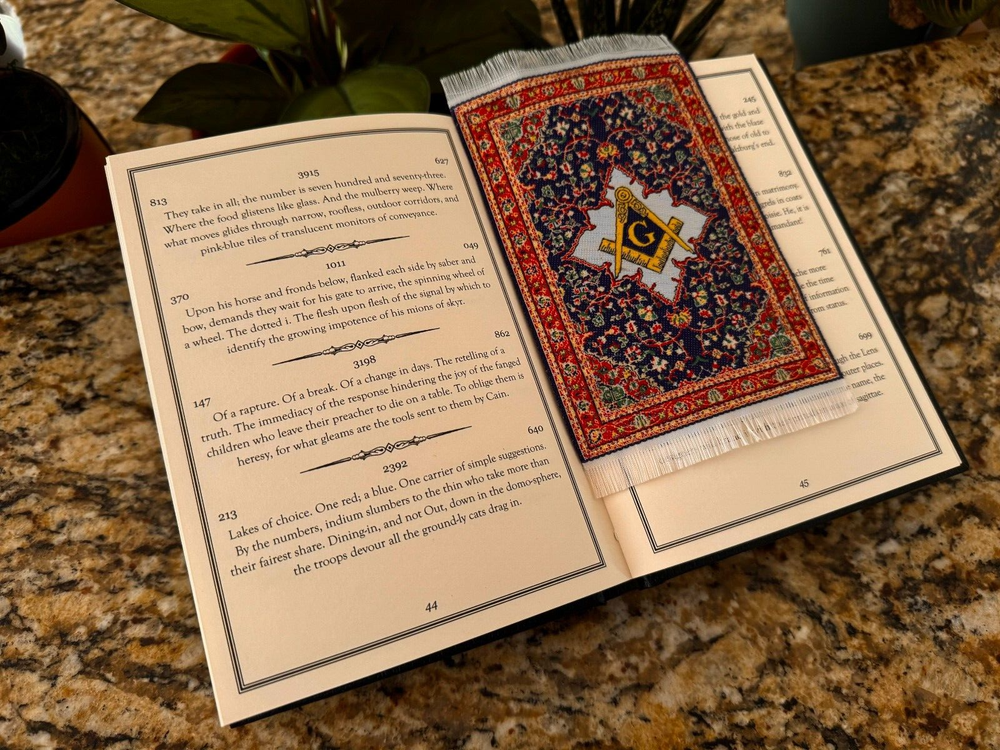 3915
813
627
They take in all; the number is seven hundred and seventy-three.
Where the food glistens like glass. And the mulberry weep. Where
what moves glides through narrow, roofless, outdoor corridors, and
pink-blue tiles of translucent monitors of conveyance.
1011
370
049
Upon his horse and fronds below, flanked each side by saber and
bow, demands they wait for his gate to arrive, the spinning wheel of
a wheel. The dotted i. The flesh upon flesh of the signal by which to
identify the growing impotence of his mions of skyr.
3198
147
862
Of a rapture. Of a break. Of a change in days. The retelling of a
truth. The immediacy of the response hindering the joy of the fanged
children who leave their preacher to die on a table. To oblige them is
heresy, for what gleams are the tools sent to them by Cain.
2392
213
640
Lakes of choice. One red; a blue. One carrier of simple suggestions.
By the numbers, indium slumbers to the thin who take more than
their fairest share. Dining-in, and not Out, down in the domo-sphere,
the troops devour all the ground-ly cats drag in.
44
G
245
the gold and
with the blaze
of old to
end.
832
matrimony.
in coats
He, it is
761
more
the time
information
from status.
699
the Lens.
outer places.
name, the
sagittae.
45